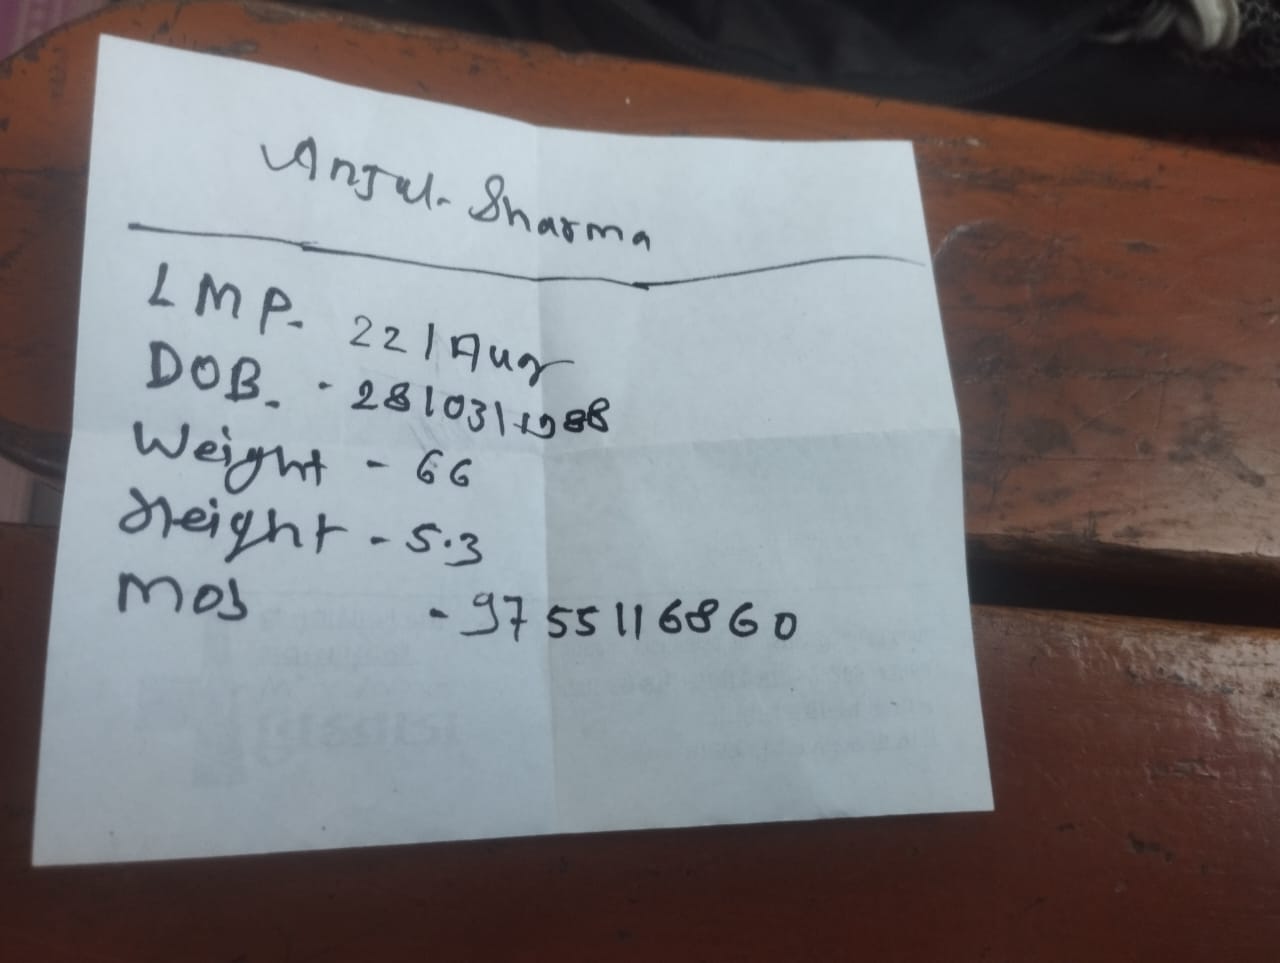 Anjul- Sharma
LMP- 22/Aug
DOB. - 28/03/1988
Weight - 66
Height - 5.3
Mob - 9755116860